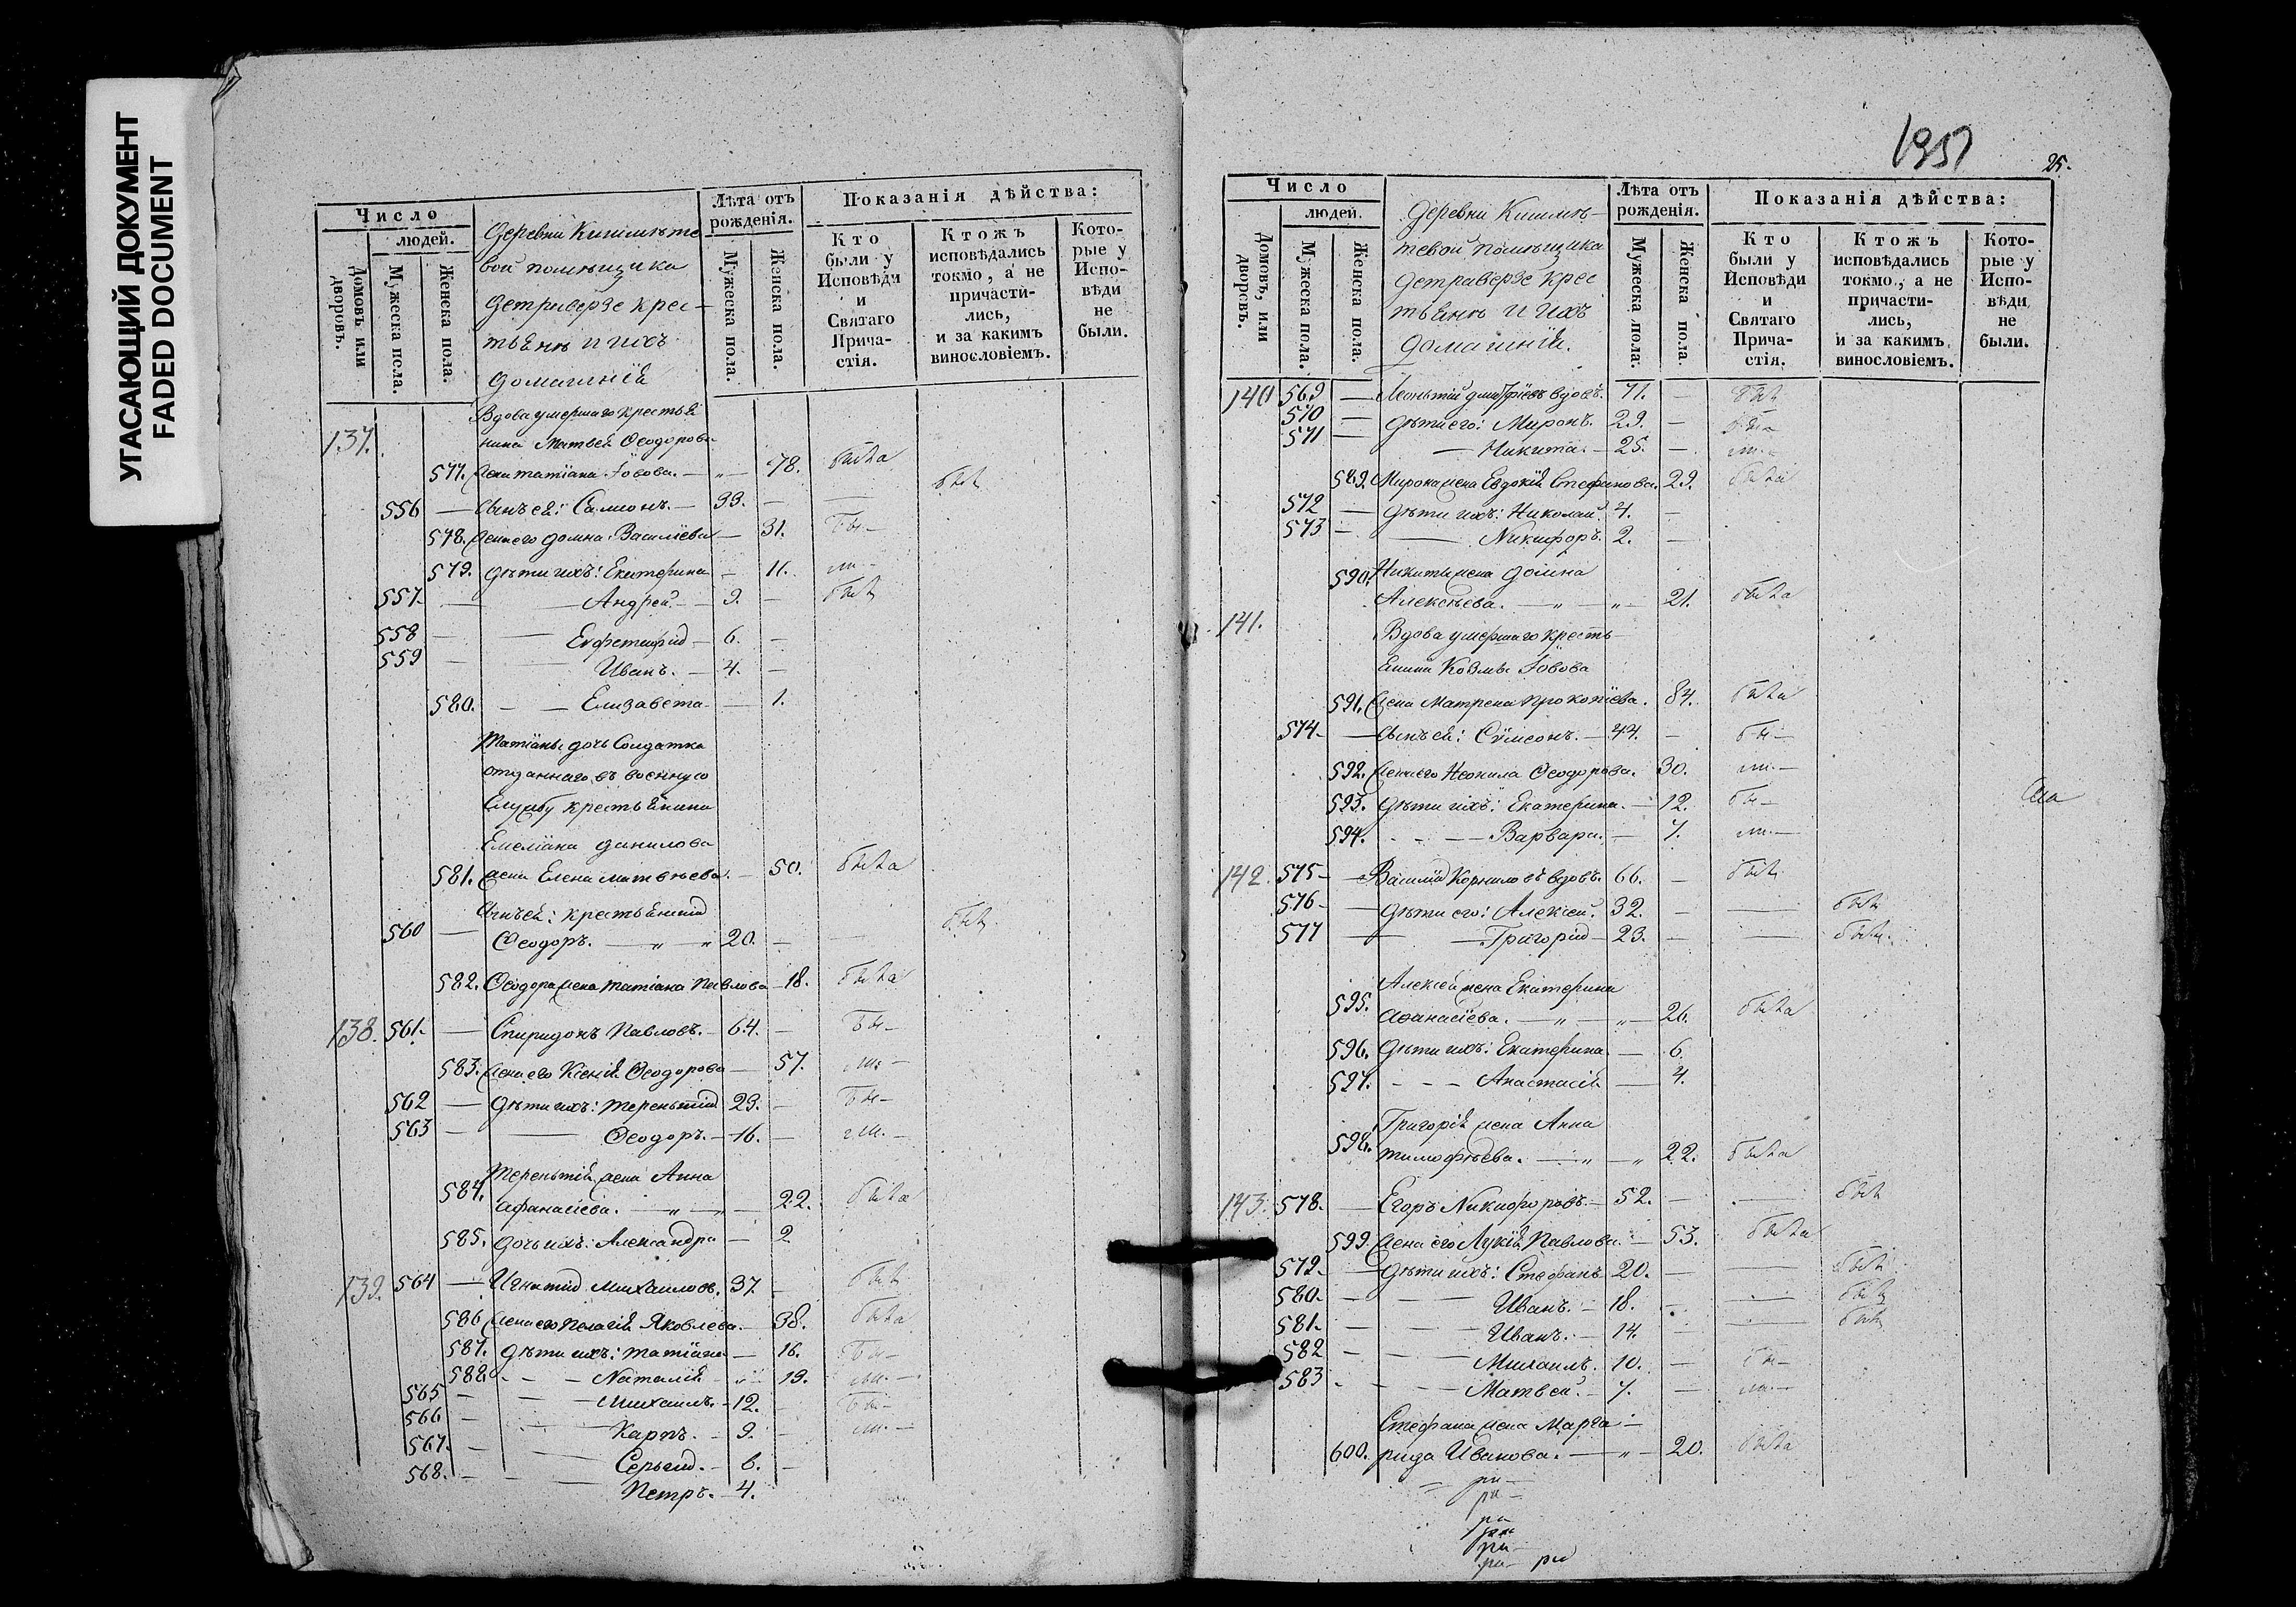 УГАСАЮЩИЙ ДОКУМЕНТ
FADED DOCUMENT
Число
людей.
Домовъ или дворовъ.
Мужеска пола.
Женска пола.
Деревни
вой помѣщика
крес-
тьянъ и ихъ
домашнія
Лѣта отъ рожденія.
Мужеска пола.
Женска пола.
Показанія дѣйства:
Кто были у Исповѣди и Святаго Прича-стія.
Ктожъ исповѣдались токмо, а не причасти-лись, и за какимъ винословіемъ.
Кото-рые у Испо-вѣди не были.
137. Вдова умершаго крестья
нина Матвея Ѳеодорова
577. жена Татіана Іовова. — „ — 78. была
556 — сынъ ея: Самсонъ. — 33. — — былъ
578. жена его Домна Василіева — 31. бы —
579. дѣти ихъ: Екатерина — 11. ли —
557. — — Андрей. — 9. — былъ
558 — — Евфстафій — 6. —
559 — — Иванъ. — 4. —
580. — — Елизавета — 1.
Татіаны дочь Солдатка
отданнаго въ военную
службу крестьянина
Емеліана Данилова
581. жена Елена Матвѣева. — 50. была
сынъ ея: крестьянинъ
560 — Ѳеодоръ. — „ — „ 20. — — былъ
582. Ѳеодора жена Татіана Павлова — 18. была
138. 561. — Спиридонъ Павловъ. — 64. — бы —
583. жена его Ксенія Ѳеодорова — 57. ли —
562 — дѣти ихъ: Терентій 23. — бы —
563 — — Ѳеодоръ. — 16. — ли. —
584. Терентія жена Анна
Афанасіева. — „ — 22. была
585. дочь ихъ: Александра — 2
139. 564 — Игнатій Михаиловъ. 37. — былъ
586 жена его Пелагія Яковлева. — 38. была
587. дѣти ихъ: Татіана — 16. бы —
588. — — Наталія — 13. ли. —
565 — — Михаилъ. — 12. — бы —
566 — — Карпъ. — 9. — ли. —
567. — — Сергій. — 6. —
568. — — Петръ. — 4.
25.
Число
людей.
Домовъ, или дворовъ.
Мужеска пола.
Женска пола.
Деревни
тевой помѣщика
крес
тьянъ и ихъ
домашнія.
Лѣта отъ рожденія.
Мужеска пола.
Женска пола.
Показанія дѣйства:
Кто были у Исповѣди и Святаго Прича-стія.
Ктожъ исповѣдались токмо, а не причасти-лись, и за какимъ винословіемъ.
Кото-рые у Испо-вѣди не были.
140 569 — Леонтій Дмитріевъ вдовъ. 71. — былъ
570 — дѣти его: Миронъ. 29. — бы —
571 — — Никита. — 25. — ли. —
589. Мирона жена Евдокія Стефанова. 29. была
572 — дѣти ихъ: Николай. 4. —
573 — — Никифоръ. 2. —
590. Никиты жена Домна
Алексѣева. — „ — „ — 21. была
141. Вдова умершаго кресть-
янина Козмы Іовова
591. жена Матрена Прокопіева. 84. была
574 — сынъ ея: Сѵмеонъ. — 44. — бы —
592. жена его Неонила Ѳеодорова. 30. ли. —
593. дѣти ихъ: Екатерина. — 12. бы —
594. — — Варвара. — 7. ли. —
142. 575 — Василій Корниловъ вдовъ. 66. — былъ
576 — дѣти его: Алексей. 32. — — былъ
577 — — Григорій — 23. — — былъ.
595. Алексея жена Екатерина
Аѳанасіева. — „ — „ — 26. была
596. дѣти ихъ: Екатерина — 6.
597. — — — Анастасія — 4.
598. Григорія жена Анна
Тимофѣева. — „ — „ 22. была
143. 578. — Егоръ Никифоровъ. — 52. — — былъ
599. жена его Лукія Павлова — 53. была
579. — дѣти ихъ: Стефанъ 20. — — былъ
580. — — Иванъ. — 18. — — былъ
581. — — Иванъ. — 14. — — былъ
582 — — Михаилъ. 10. — бы —
583 — — Матвей. — 7. — ли. —
Стефана жена Марга-
600. рида Иванова. — „ — 20. была
ри —
ри —
ри
ри
ри —
ри — ри